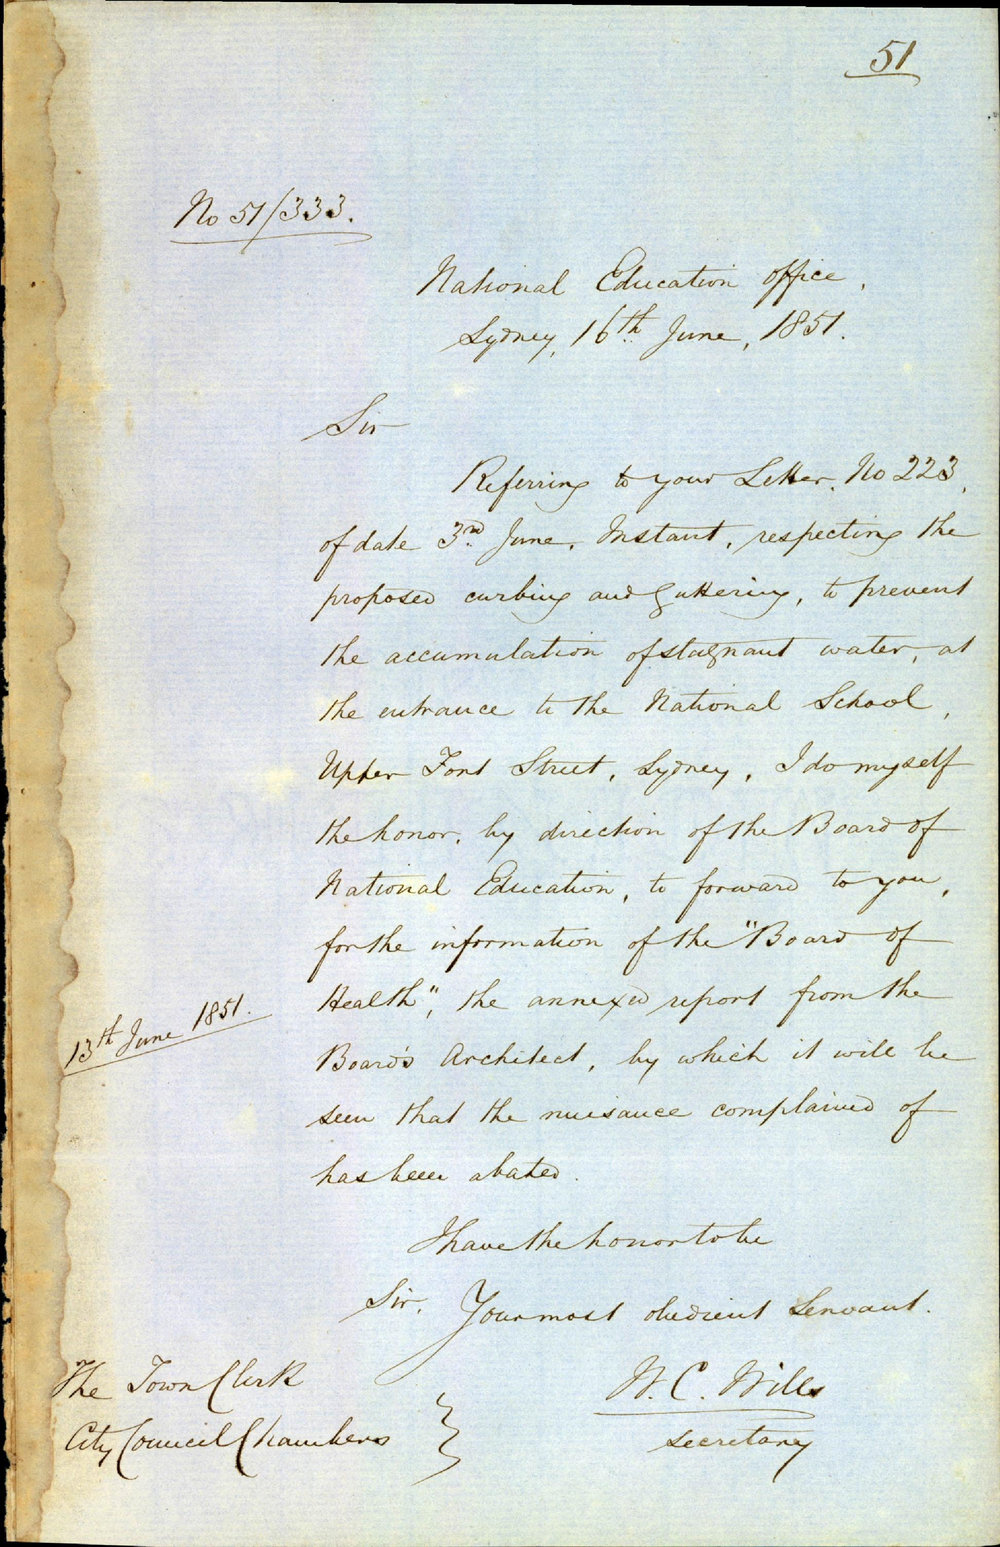 51
No 51/333.
National Education Office,
Sydney, 16th June, 1851.
Sir
Referring to your Letter, No 223,
of date 3rd June, Instant, respecting the
proposed curbing and Guttering, to prevent
the accumulation of stagnant water, at
the entrance to the National School,
Upper Fort Street, Sydney, I do myself
the honor, by direction of the Board of
National Education, to forward to you,
for the information of the "Board of
Health", the annexed report from the
13th June 1851.
Board's Architect, by which it will be
seen that the nuisance complained of
has been abated.
I have the honor to be
Sir, Your most obedient Servant.
W. C. Wills
Secretary
The Town Clerk
City Council Chambers